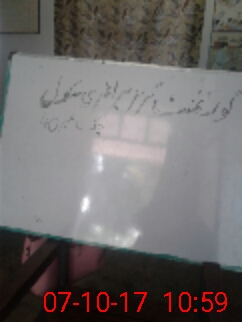 گورنمنٹ گرلز پرائمری سکول
چک نمبر
07-10-17 10:59